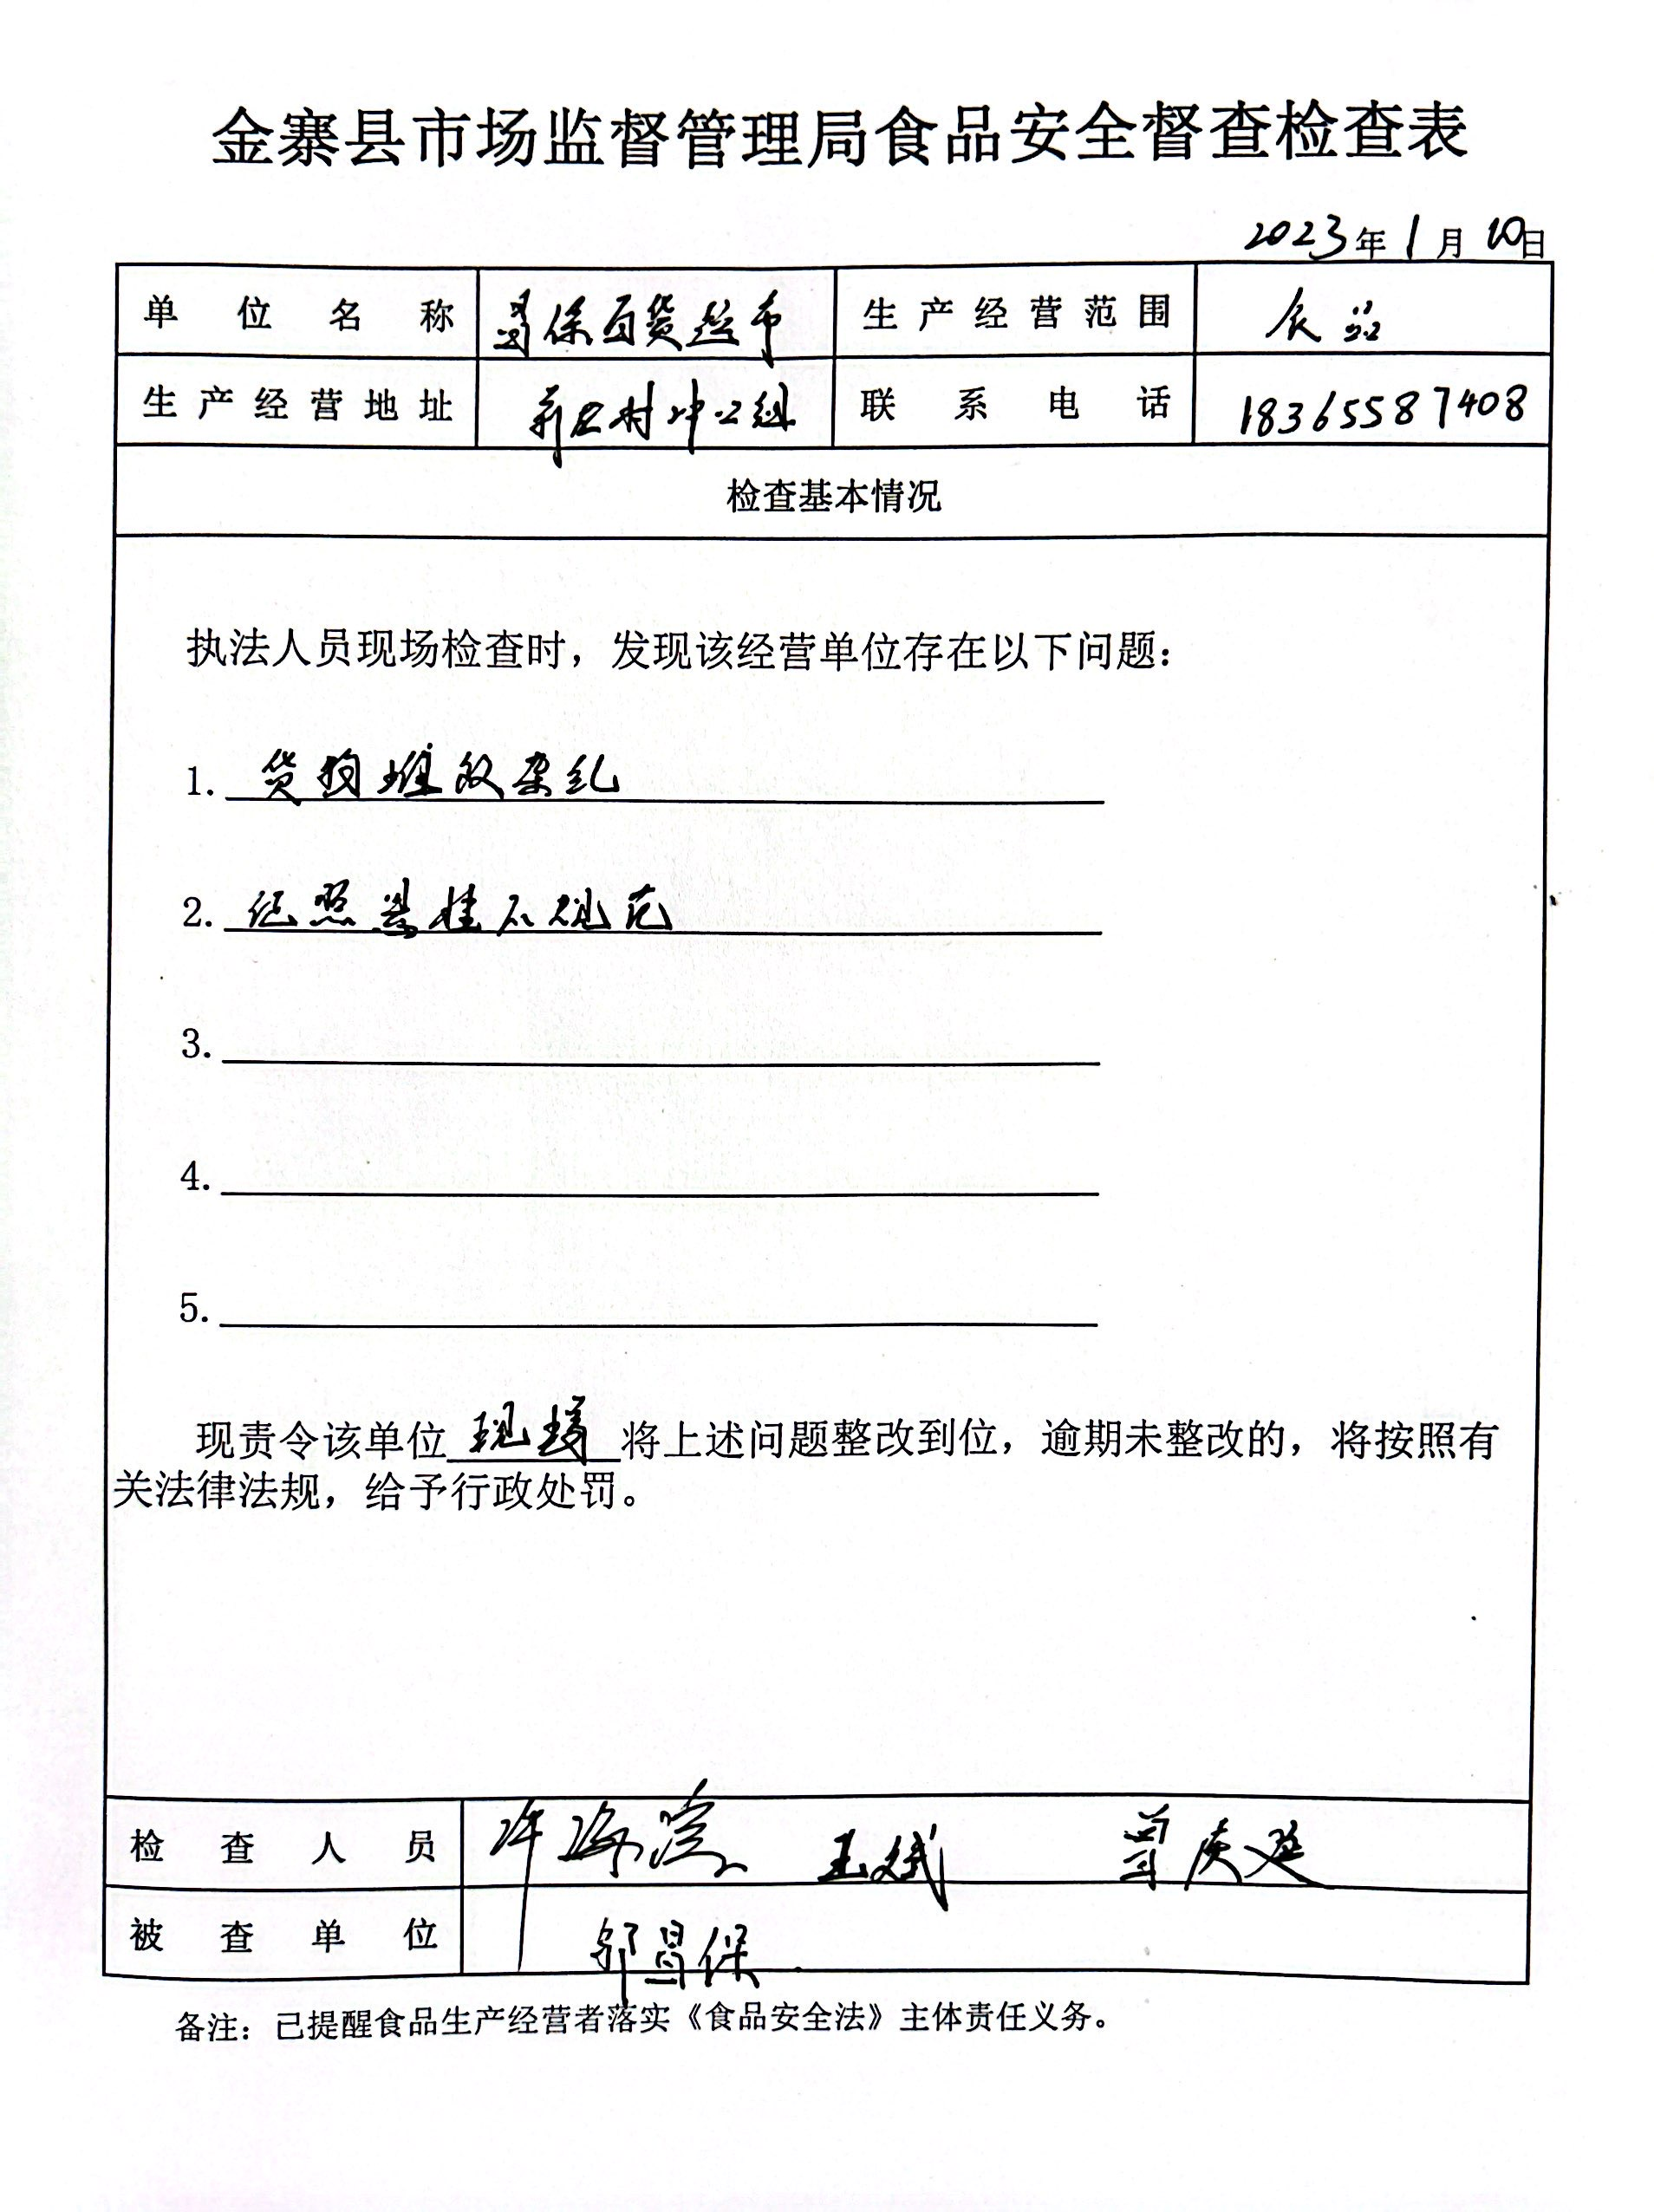 金寨县市场监督管理局食品安全督查检查表
2023年1月10日
单位名称 昌保百货超市 生产经营范围 食品
生产经营地址 村冲口组 联系电话 18365587408
检查基本情况
执法人员现场检查时，发现该经营单位存在以下问题：
1. 货物堆放杂乱
2. 证照悬挂不规范
3.
4.
5.
现责令该单位现场将上述问题整改到位，逾期未整改的，将按照有
关法律法规，给予行政处罚。
检查人员 许海 王斌 曾庆
被查单位 郭昌保
备注：已提醒食品生产经营者落实《食品安全法》主体责任义务。